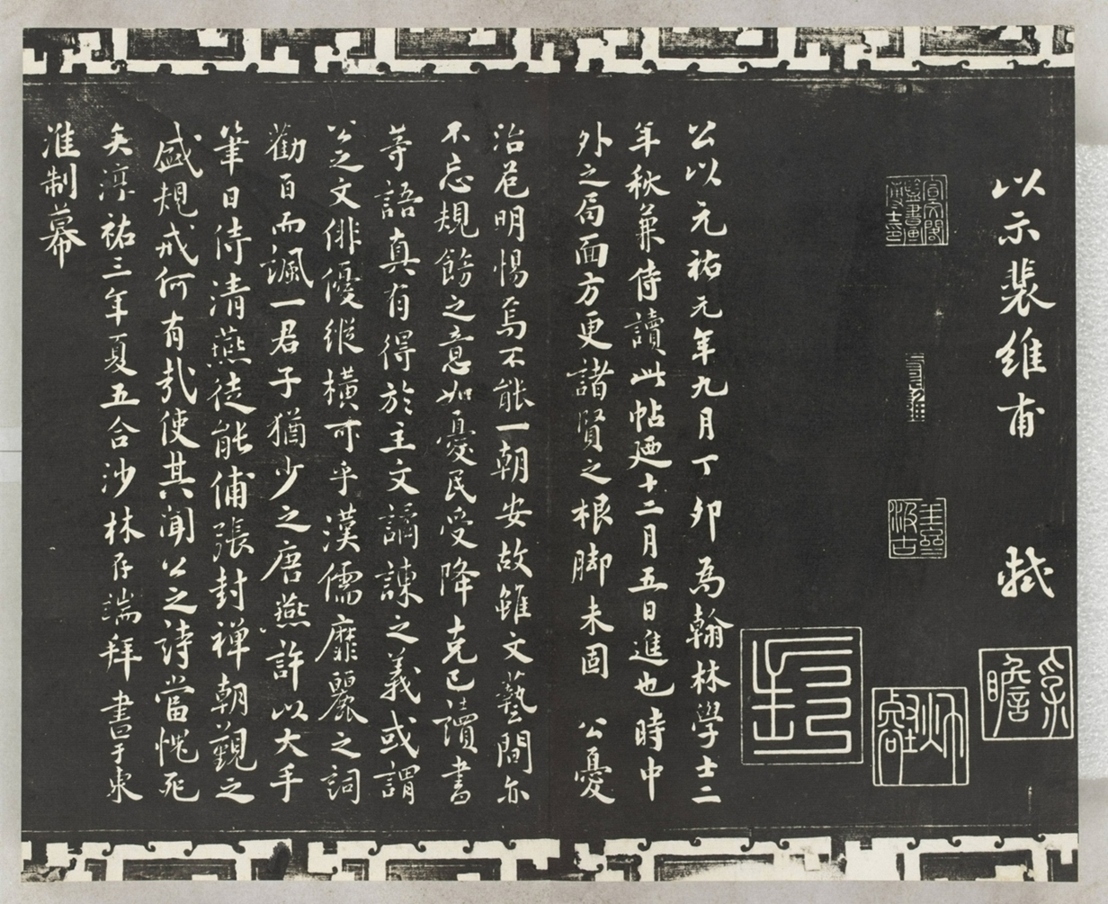 以示裴維甫 軾
公以元祐元年九月丁卯為翰林學士二
年秋兼侍讀此帖廼十二月五日進也時中
外之局面方更諸賢之根脚未固 公憂
治危明惕焉不能一朝安故雖文藝間亦
不忘規飭之意如憂民受降克己讀書
等語真有得於主文譎諫之義或謂
公之文俳優縱橫可乎漢儒靡麗之詞
勸百而諷一君子猶少之唐燕許以大手
筆日侍清燕徒能俌張封禅朝覲之
盛規戒何有哉使其聞公之詩當愧死
矣淳祐三年夏五合沙林存端拜書于東
淮制幕